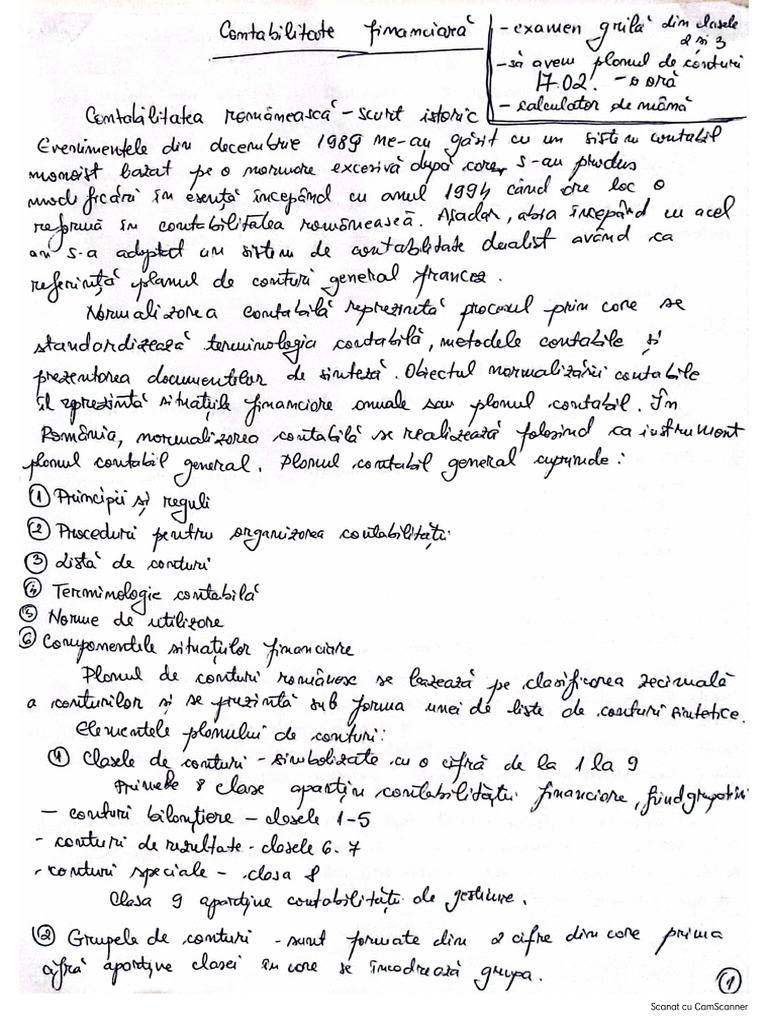 Contabilitate financiară
- examen grilă din clasele 2 și 3
- să avem planul de conturi
17.02. - o oră
- calculator de mână
Contabilitatea românească - scurt istoric
Evenimentele din decembrie 1989 ne-au găsit cu un sistem contabil
monist bazat pe o normare excesivă după care s-au produs
modificări în esență începând cu anul 1994 când are loc o
reformă în contabilitatea românească. Așadar, abia începând cu acel
an s-a adoptat un sistem de contabilitate dualist având ca
referință planul de conturi general francez.
Normalizarea contabilă reprezintă procesul prin care se
standardizează terminologia contabilă, metodele contabile și
prezentarea documentelor de sinteză. Obiectul normalizării contabile
îl reprezintă situațiile financiare anuale sau planul contabil. În
România, normalizarea contabilă se realizează folosind ca instrument
planul contabil general. Planul contabil general cuprinde:
① Principii și reguli
② Proceduri pentru organizarea contabilității
③ Listă de conturi
④ Terminologie contabilă
⑤ Norme de utilizare
⑥ Componentele situațiilor financiare
Planul de conturi românesc se bazează pe clasificarea zecimală
a conturilor și se prezintă sub forma unei de liste de conturi sintetice.
Elementele planului de conturi:
① Clasele de conturi - simbolizate cu o cifră de la 1 la 9
Primele 8 clase aparțin contabilității financiare, fiind grupate în
- conturi bilanțiere - clasele 1-5
- conturi de rezultate - clasele 6-7
- conturi speciale - clasa 8
Clasa 9 aparține contabilității de gestiune.
② Grupele de conturi - sunt formate din 2 cifre din care prima
cifră aparține clasei în care se încadrează grupa.
①
Scanat cu CamScanner